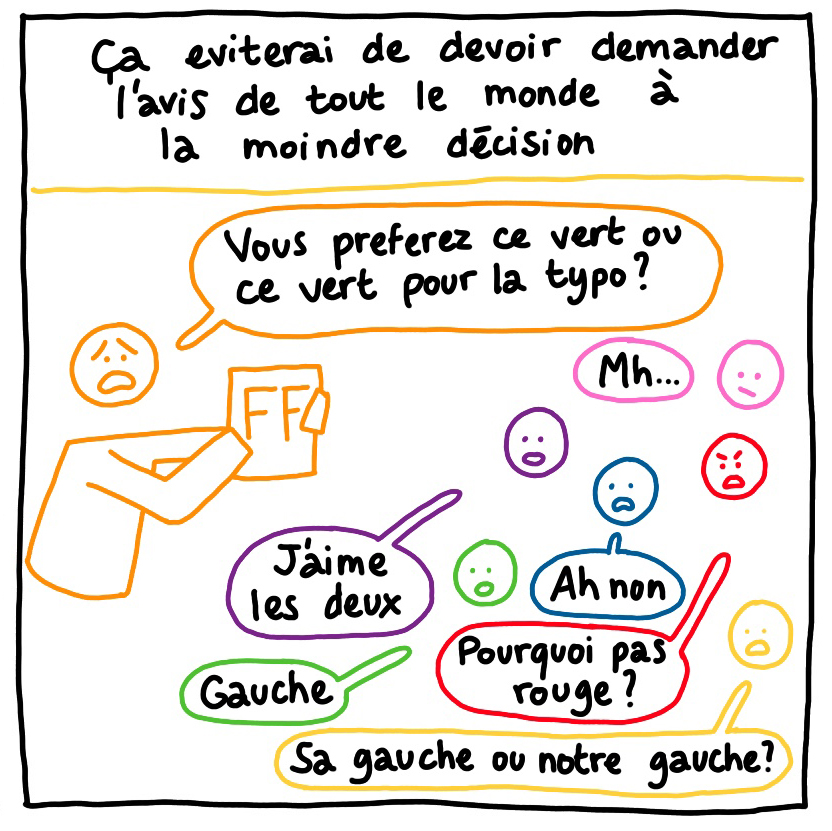 Ça eviterai de devoir demander
l'avis de tout le monde à
la moindre décision
Vous preferez ce vert ou
ce vert pour la typo?
FF
Mh...
J'aime
les deux
Ah non
Pourquoi pas
rouge?
Gauche
Sa gauche ou notre gauche?